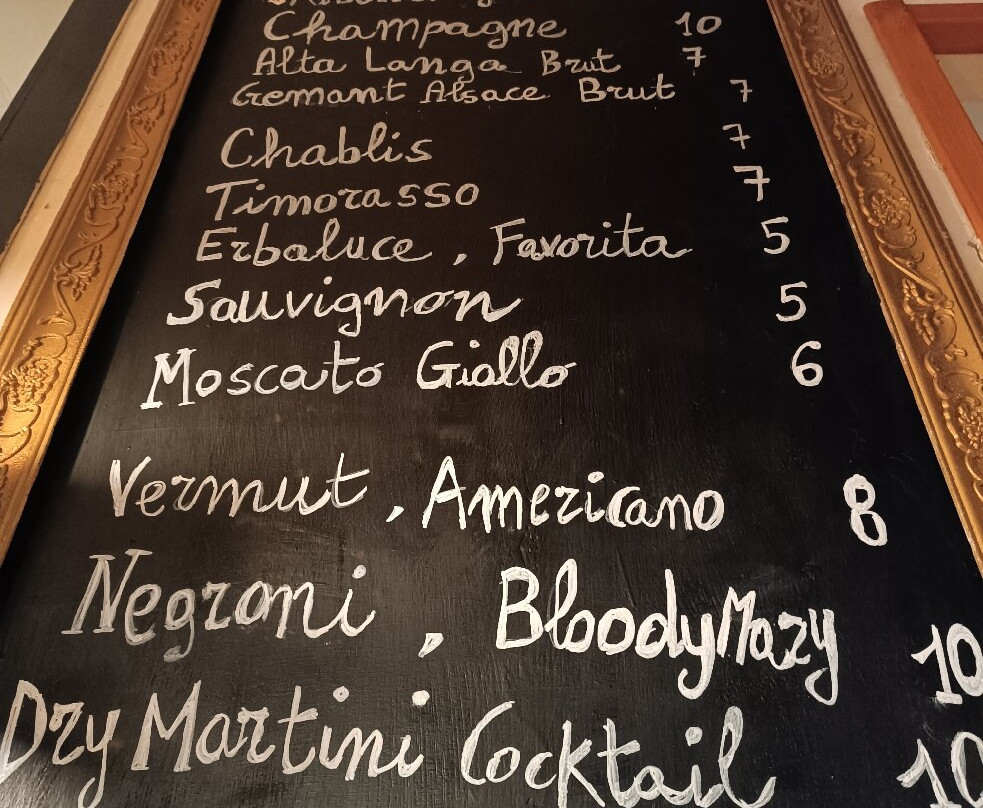 Champagne 10
Alta Langa Brut 7
Cremant Alsace Brut 7
Chablis 7
Timorasso 7
Erbaluce, Favorita 5
Sauvignon 5
Moscato Giallo 6
Vermut, Americano 8
Negroni, Bloody Mary 10
Dry Martini Cocktail 10